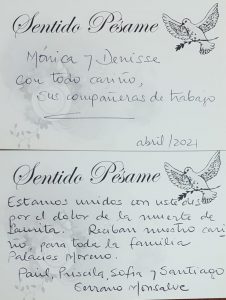 Sentido Pésame
Mónica y Denisse
Con todo cariño,
Sus compañeras de trabajo
abril/2021
Sentido Pésame
Estamos unidos con ustedes
por el dolor de la muerte de
Laurita. Reciban nuestro cari
ño, para toda la familia
Palacios Moreno.
Paúl, Priscila, Sofía y Santiago
Serrano Monsalve